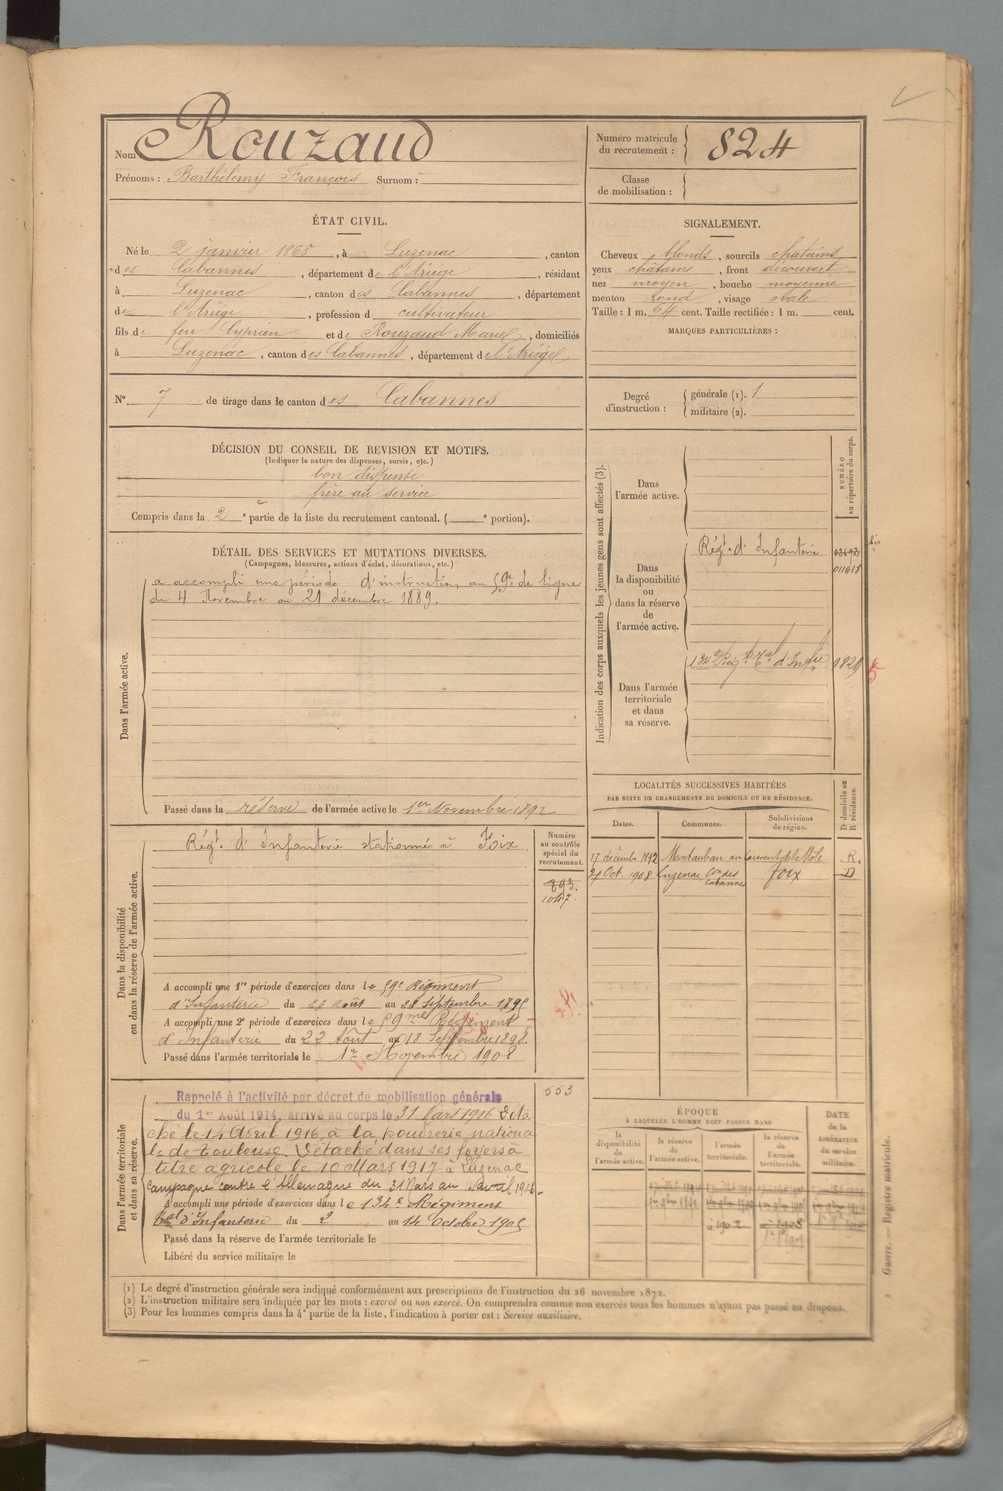 Nom Rouzaud
Prénoms : Barthélemy François Surnom :
Numéro matricule du recrutement : 824
Classe de mobilisation :
ÉTAT CIVIL.
Né le 2 janvier 1868, à Luzenac, canton
des Cabannes, département de l'Ariége, résidant
à Luzenac, canton des Cabannes, département
de l'Ariége, profession d cultivateur
fils de feu Cyprien et de Rouzaud Marie, domiciliés
à Luzenac, canton des Cabannes, département de l'Ariége
SIGNALEMENT.
Cheveux blonds, sourcils chatains
yeux châtains, front découvert
nez moyen, bouche moyenne
menton rond, visage ovale
Taille : 1 m. 64 cent. Taille rectifiée : 1 m. cent.
MARQUES PARTICULIÈRES :
N° 7 de tirage dans le canton des Cabannes
Degré d'instruction :
générale (1). 1
militaire (2).
DÉCISION DU CONSEIL DE REVISION ET MOTIFS.
(Indiquer la nature des dispenses, sursis, etc.)
bon dispensé
frère au service
Compris dans la 2e partie de la liste du recrutement cantonal. ( e portion).
DÉTAIL DES SERVICES ET MUTATIONS DIVERSES.
(Campagnes, blessures, actions d'éclat, décorations, etc.)
Dans l'armée active.
a accompli une période d'instruction au 59e de ligne
du 4 Novembre au 21 décembre 1889.
Passé dans la réserve de l'armée active le 1er Novembre 1892
Indication des corps auxquels les jeunes gens sont affectés (3).
NUMÉRO au répertoire du corps.
Dans l'armée active.
Dans la disponibilité ou dans la réserve de l'armée active.
Régt. d'Infanterie
011615
Dans l'armée territoriale et dans sa réserve.
134e Régt tal d'Infie
1829
LOCALITÉS SUCCESSIVES HABITÉES
PAR SUITE DE CHANGEMENTS DE DOMICILE OU DE RÉSIDENCE.
D domicile ou R résidence.
Dates. Communes. Subdivisions de région.
17 décembre 1892 Montauban au R.
Oct. 1908 Luzenac con des Cabannes Foix D
Dans la disponibilité ou dans la réserve de l'armée active.
Régt. d'Infanterie stationné à Foix
Numéro au contrôle spécial du recrutement.
893.
1047.
A accompli une 1re période d'exercices dans le 59e Régiment
d'Infanterie du août au septembre 1895
A accompli une 2e période d'exercices dans le 59me Régiment
d'Infanterie du 22 Août au 18 Septembre 1898.
Passé dans l'armée territoriale le 1er Novembre 1902
Dans l'armée territoriale et dans sa réserve.
553
Rappelé à l'activité par décret de mobilisation générale
du 1er Août 1914, arrivé au corps le 31 Mars 1916 Déta
ché le 14 Avril 1916, à la poudrerie nationa
le de Toulouse. Détaché dans ses foyers à
titre agricole le 10 Mars 1917 à Luzenac
Campagne contre l'Allemagne du 31 Mars au avril 1916.
A accompli une période d'exercices dans le 134e Régiment
tal d'Infanterie du 2 au 14 Octobre 1905
Passé dans la réserve de l'armée territoriale le
Libéré du service militaire le
ÉPOQUE
À LAQUELLE L'HOMME DOIT PASSER DANS
DATE de la LIBÉRATION du service militaire.
la disponibilité de l'armée active.
la réserve de l'armée active.
l'armée territoriale.
la réserve de l'armée territoriale.
(1) Le degré d'instruction générale sera indiqué conformément aux prescriptions de l'instruction du 26 novembre 1872.
(2) L'instruction militaire sera indiquée par les mots : exercé ou non exercé. On comprendra comme non exercés tous les hommes n'ayant pas passé au drapeau.
(3) Pour les hommes compris dans la 4e partie de la liste, l'indication à porter est : Service auxiliaire.
Guerre. — Registre matricule.